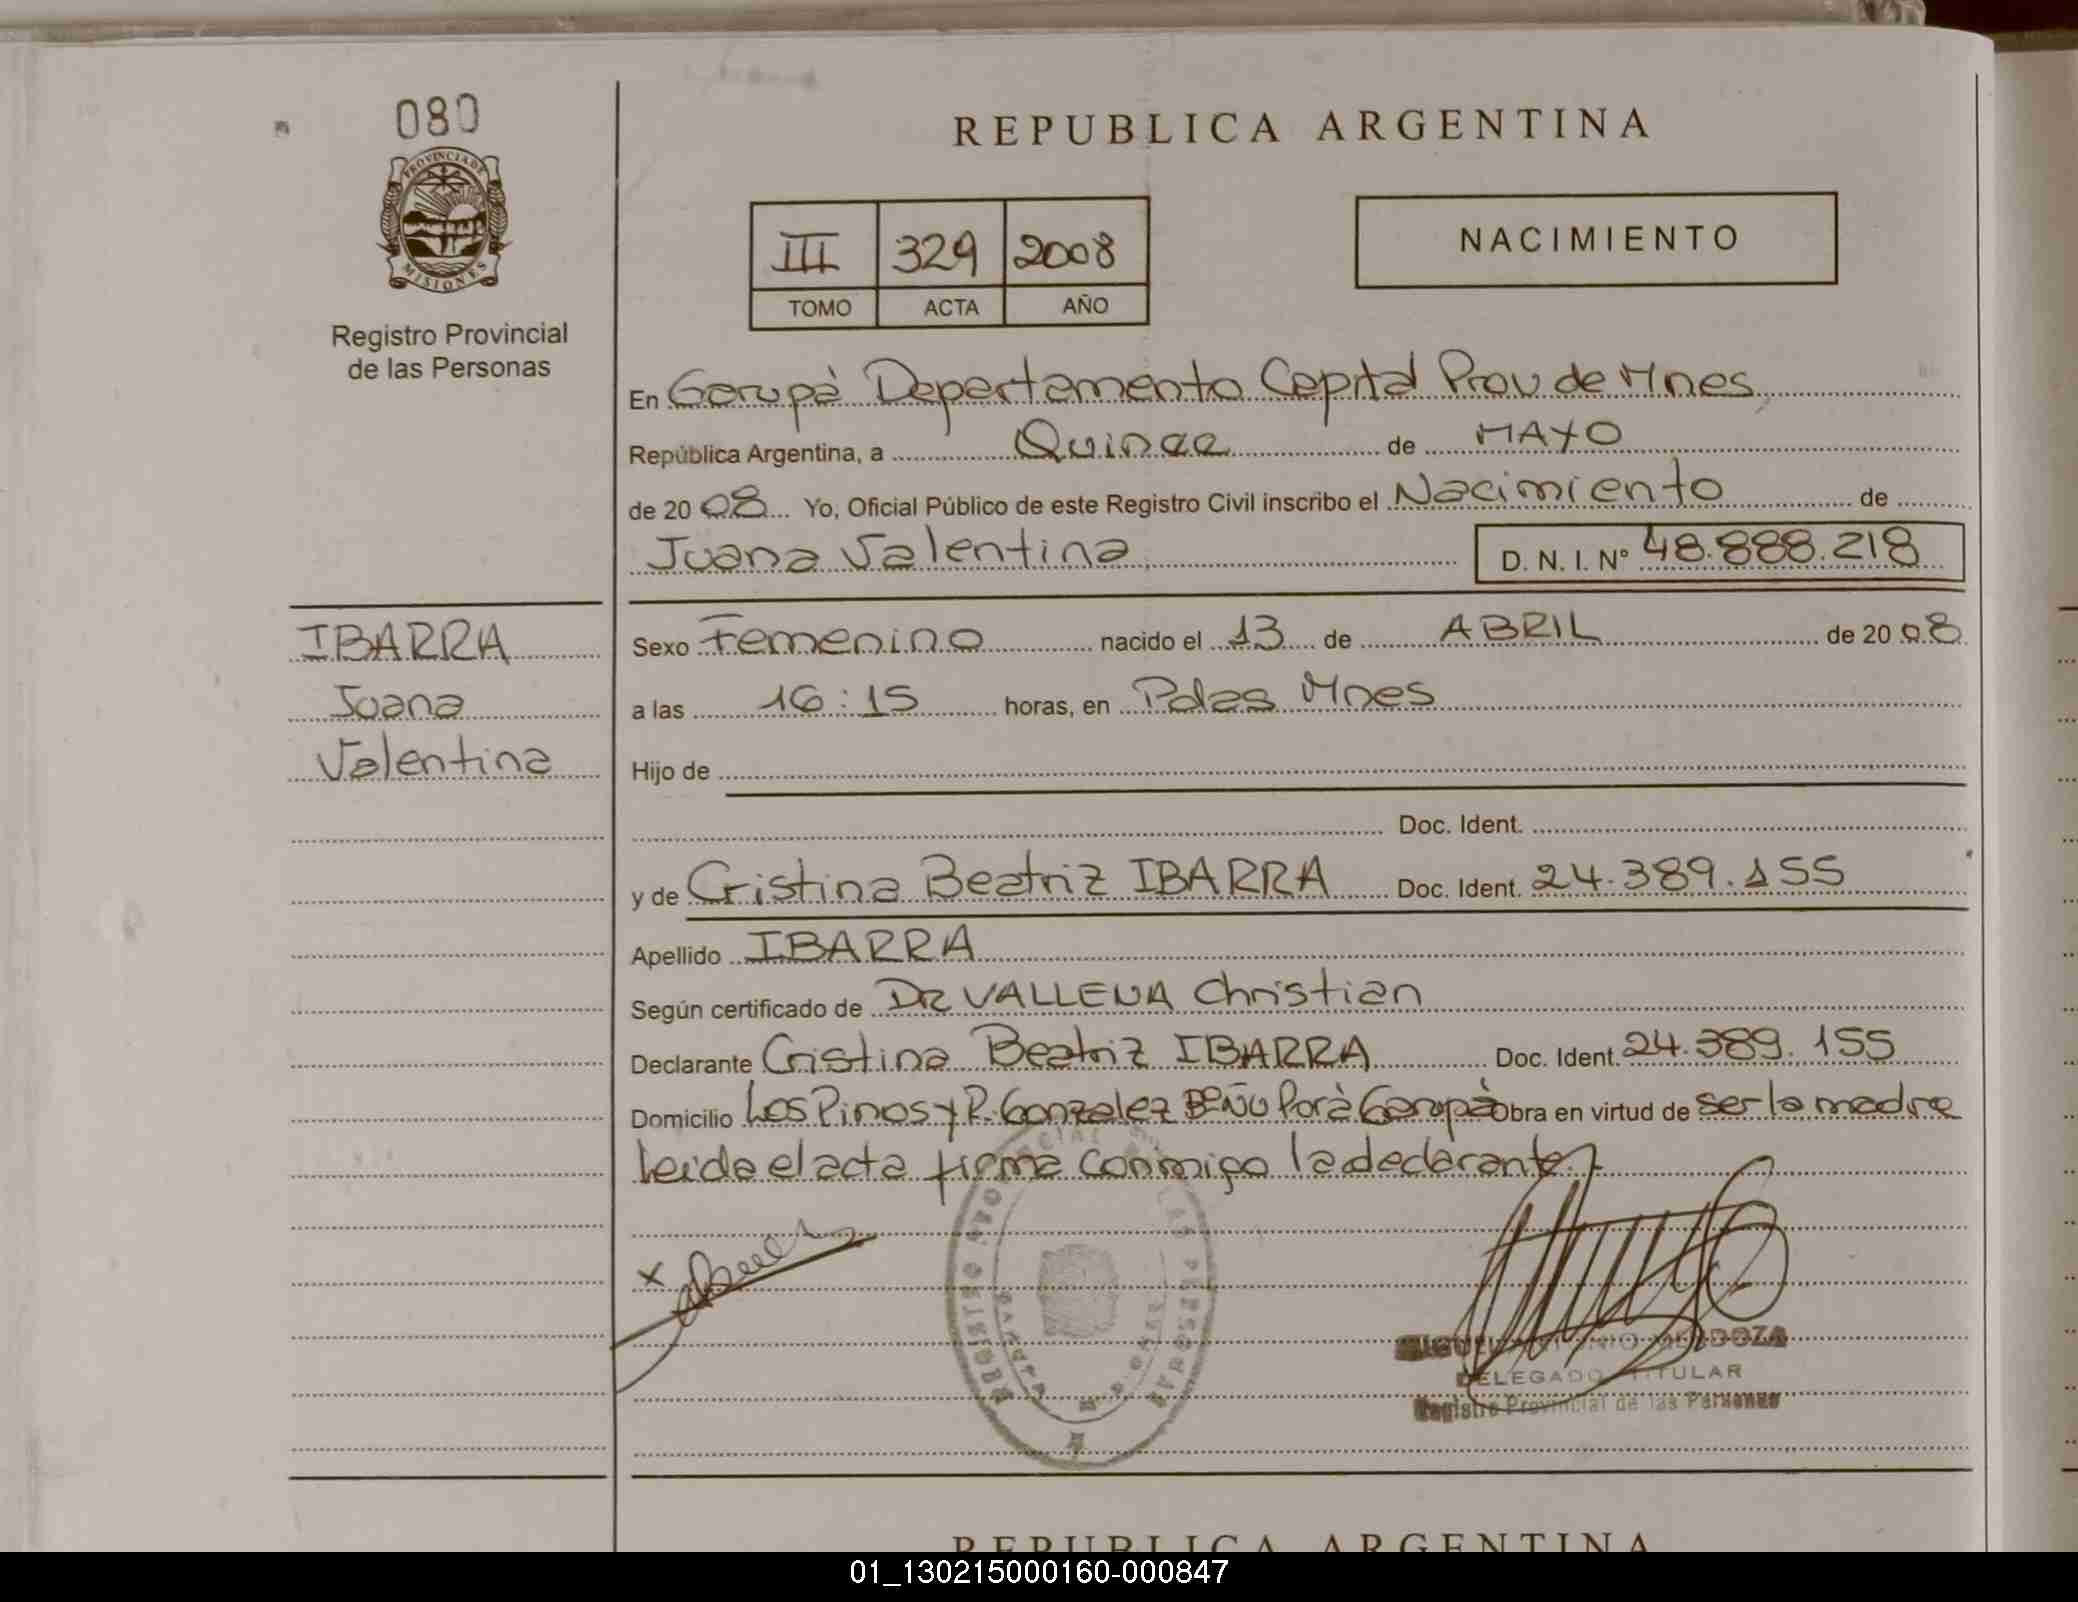 080
PROVINCIA DE
MISIONES
Registro Provincial
de las Personas
REPUBLICA ARGENTINA
III 329 2008
TOMO ACTA AÑO
NACIMIENTO
En Garupà Departamento Capital Prov de Mnes
República Argentina, a Quince de MAYO
de 2008 Yo, Oficial Público de este Registro Civil inscribo el Nacimiento de
Juana Valentina D. N. I. Nº 48.888.218
IBARRA
Juana
Valentina
Sexo Femenino nacido el 13 de ABRIL de 2008
a las 16:15 horas, en Pdas Mnes
Hijo de
Doc. Ident.
y de Cristina Beatriz IBARRA Doc. Ident. 24.389.155
Apellido IBARRA
Según certificado de DR VALLENA Christian
Declarante Cristina Beatriz IBARRA Doc. Ident. 24.389.155
Domicilio Los Pinos y P. Gonzalez Porà Garupà Obra en virtud de ser la madre
leida el acta firma conmigo la declarante
REGISTRO PROVINCIAL DE LAS PERSONAS
MIGUEL ANTONIO MENDOZA
DELEGADO TITULAR
Registro Provincial de las Personas
REPUBLICA ARGENTINA
01_130215000160-000847